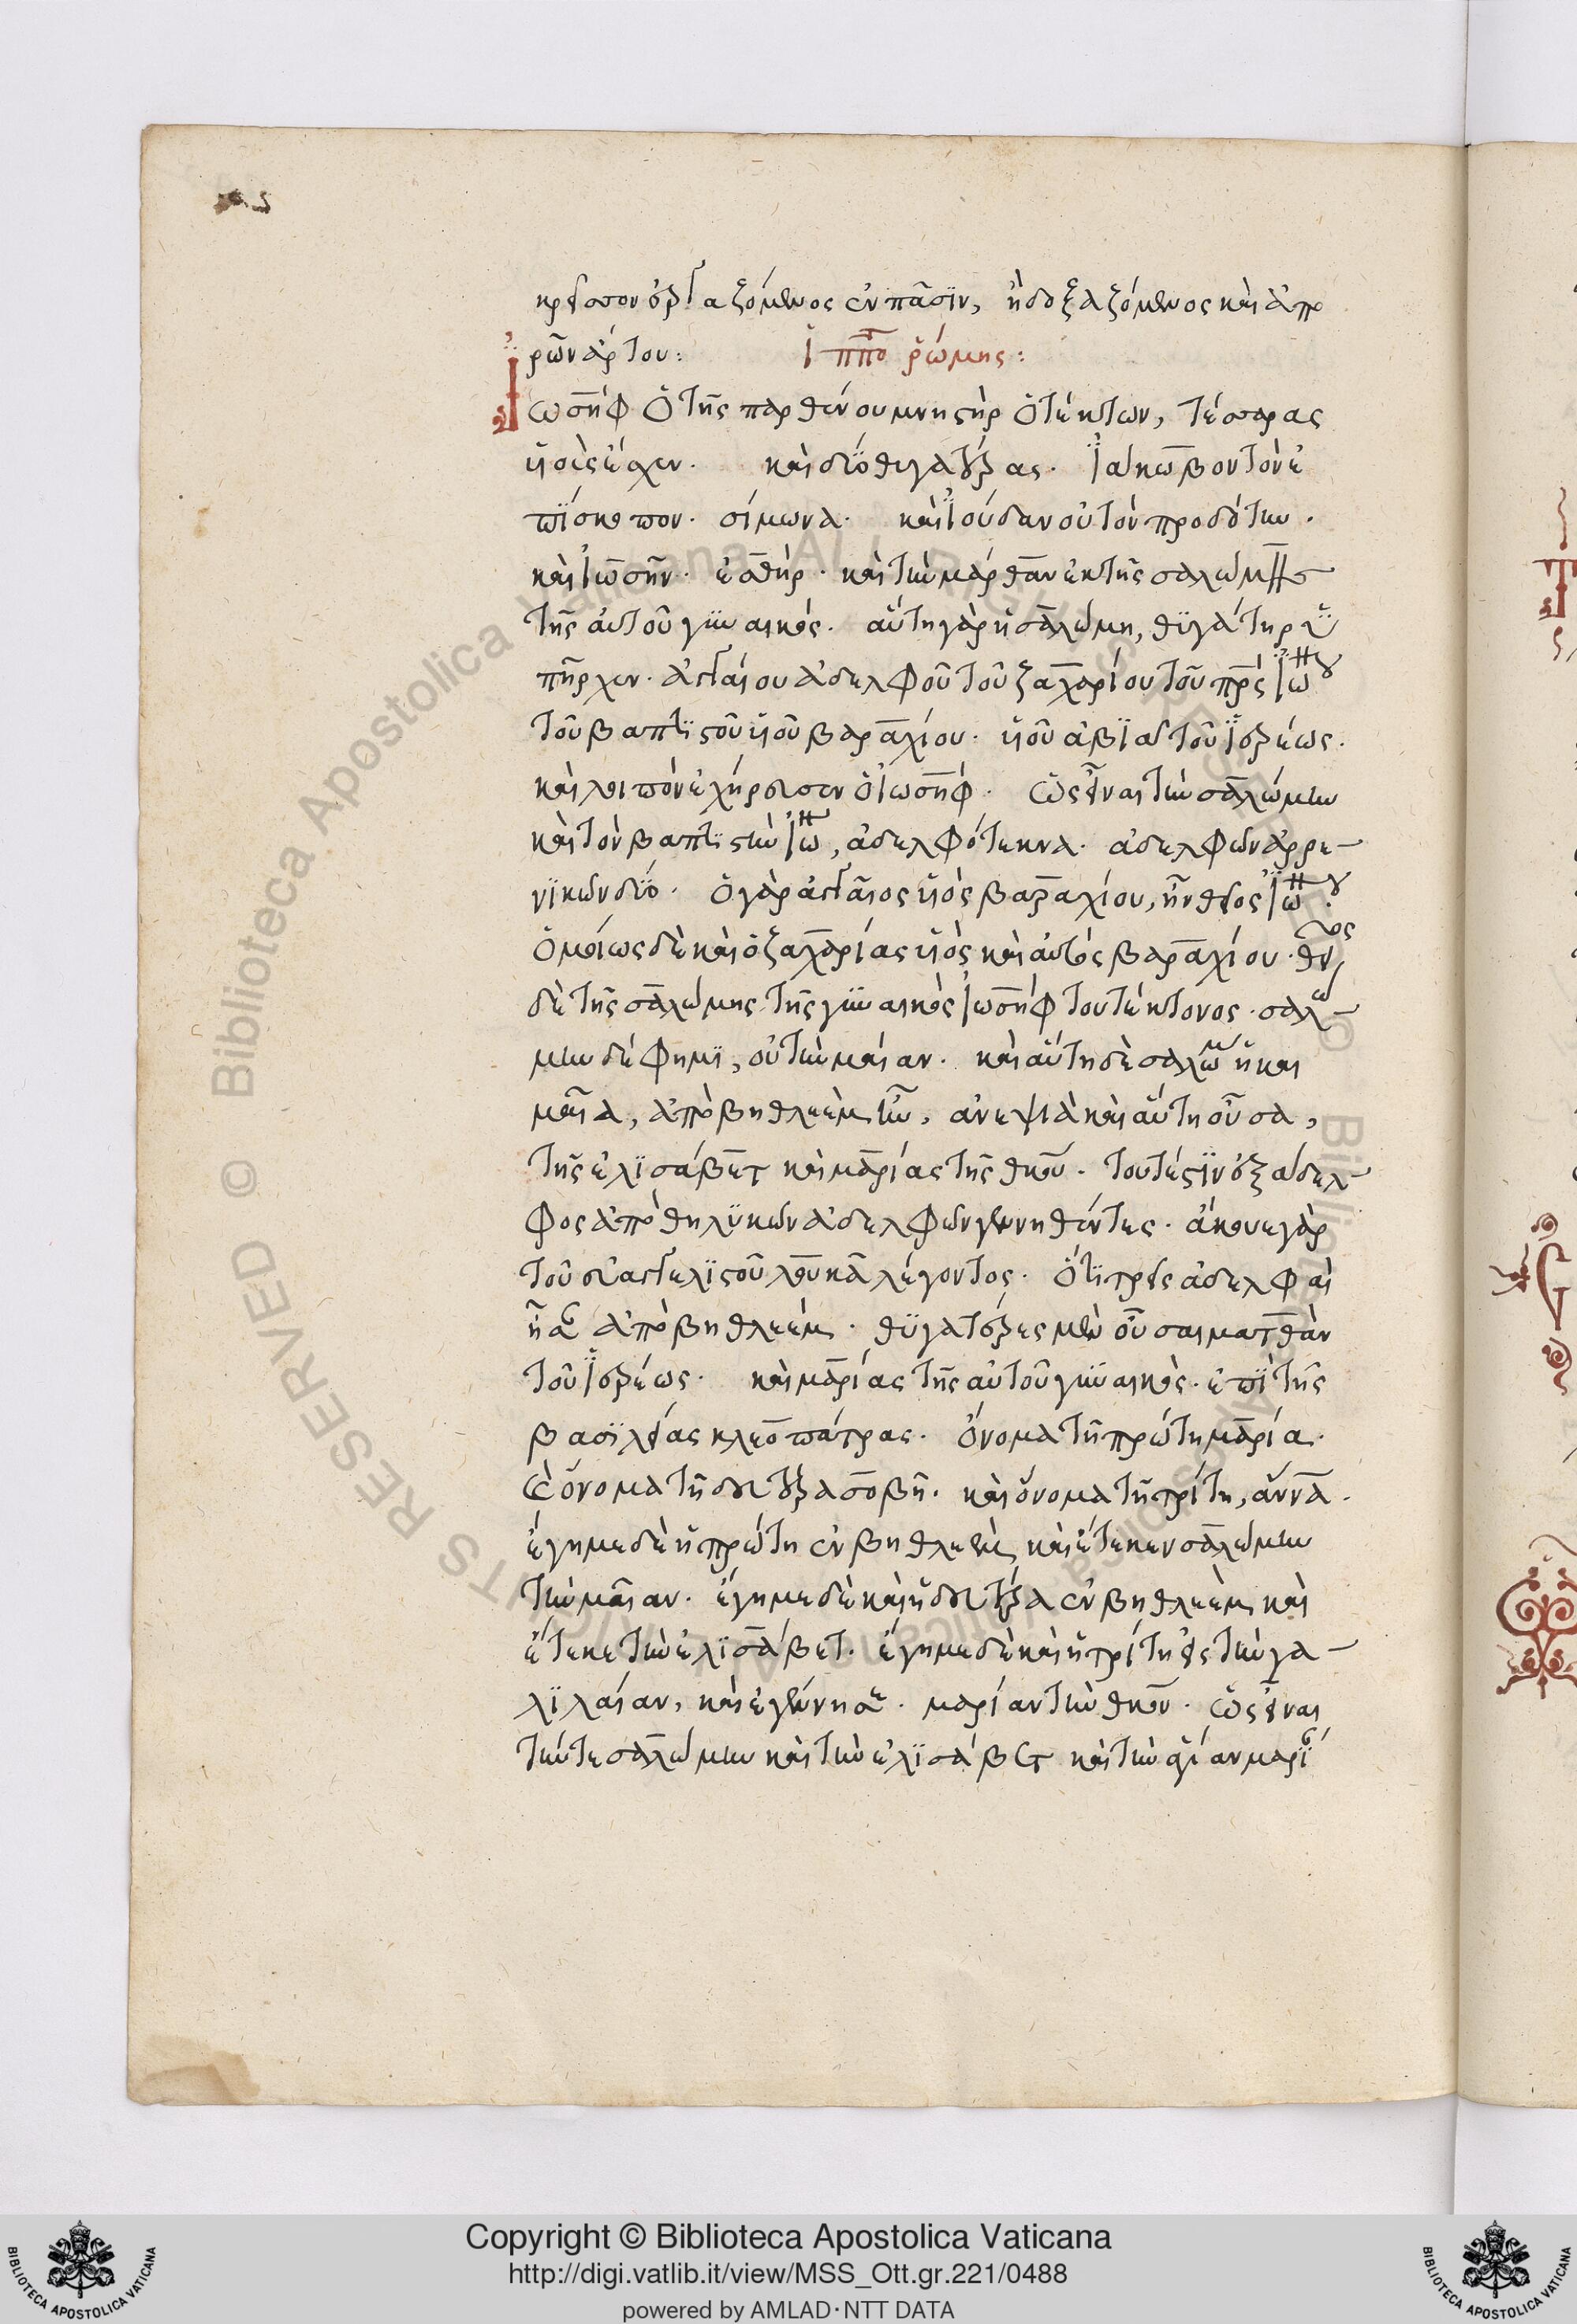 κρεῖσσον ἐργαζόμενος ἐν πᾶσϊν, ἢ δοξαζόμενος καὶ ἀπο
ρῶν ἄρτου:   ἱππο ῥώμης:
Ἰωσὴφ ὁ τῆς παρθένου μνηστὴρ ὁ τέκτων, τέσσαρας
υἱοὺς ἔσχεν. καὶ δύο θυγατέρας. Ἰάκωβον τὸν ἐ
πίσκοπον. σίμωνα. καὶ Ἰούδαν οὐ τὸν προδότην.
καὶ Ἰωσῆν. ἐσθὴρ. καὶ τὴν μάρθαν ἐκ τῆς σαλώμης
τῆς αὐτοῦ γυναικός. αὕτη γὰρ ἡ σαλώμη, θϋγάτηρ ὑ
πῆρχεν. ἀγγαίου ἀδελφοῦ τοῦ ζαχαρίου τοῦ πρς Ἰω
τοῦ βαπτϊστοῦ υἱοῦ βαραχίου. υἱοῦ ἀβϊὰ τοῦ Ἱερέως.
καὶ λοιπὸν ἐχήρευσεν ὁ Ἰωσήφ. ὡς εἶναι τὴν σαλώμην
καὶ τὸν βαπτϊστὴν Ἰω, ἀδελφότεκνα. ἀδελφῶν ἀρρε-
νϊκῶν δύο. ὁ γὰρ ἀγγαῖος υἱὸς βαραχίου, ἦν θεῖος Ἰω
ὁμοίως δὲ καὶ ὁ ζαχαρίας υἱὸς καὶ αὐτὸς βαραχίου.
δὲ τῆς σαλώμης τῆς γυναικὸς Ἰωσὴφ του τέκτονος. σαλώ-
μην δέ φημϊ, οὐ τὴν μαίαν. καὶ αὕτη δὲ σαλώμ ἡ και
μαῖα, ἀπὸ βηθλεὲμ ἦν, ἀνεψιὰ καὶ αὕτη οὖσα,
τῆς ἐλϊσάβετ καὶ μαρίας τῆς θκου. τουτέστϊν ἐξαδελ-
φος ἀπὸ θηλϋκῶν ἀδελφῶν γεννηθέντες. ἄκουε γὰρ
τοῦ εὐαγγελϊστοῦ λουκᾶ λέγοντος. ὅτι τρεῖς ἀδελφαὶ
ἦσαν ἀπὸ βηθλεέμ. θϋγατέρες μὲν οὖσαι ματθὰν
τοῦ Ἱερέως. καὶ μαρίας τῆς αὐτοῦ γυναικὸς. ἐπὶ τῆς
βασϊλείας κλεοπάτρας. ὄνομα τῆ πρώτη μαρία.
Καὶ ὄνομα τῆ δευτέρα σοβῆ. καὶ ὄνομα τῆ τρίτη, ἄννα.
ἔγημε δὲ ἡ πρώτη ἐν βηθλεὲμ καὶ ἔτεκεν σαλώμην
τὴν μαῖαν. ἔγημε δὲ καὶ ἡ δευτέρα ἐν βηθλεὲμ καὶ
ἔτεκε τὴν ἐλϊσάβετ. ἔγημε δὲ καὶ ἡ τρίτη εἰς τὴν γα-
λϊλαίαν, καὶ ἐγέννησε. μαρίαν τὴν θκον. ὡς εἶναι
τήν τε σαλώμην καὶ τὴν ἐλϊσάβετ καὶ τὴν ἁγίαν μαρϊ
Copyright © Biblioteca Apostolica Vaticana
http://digi.vatlib.it/view/MSS_Ott.gr.221/0488
powered by AMLAD·NTT DATA